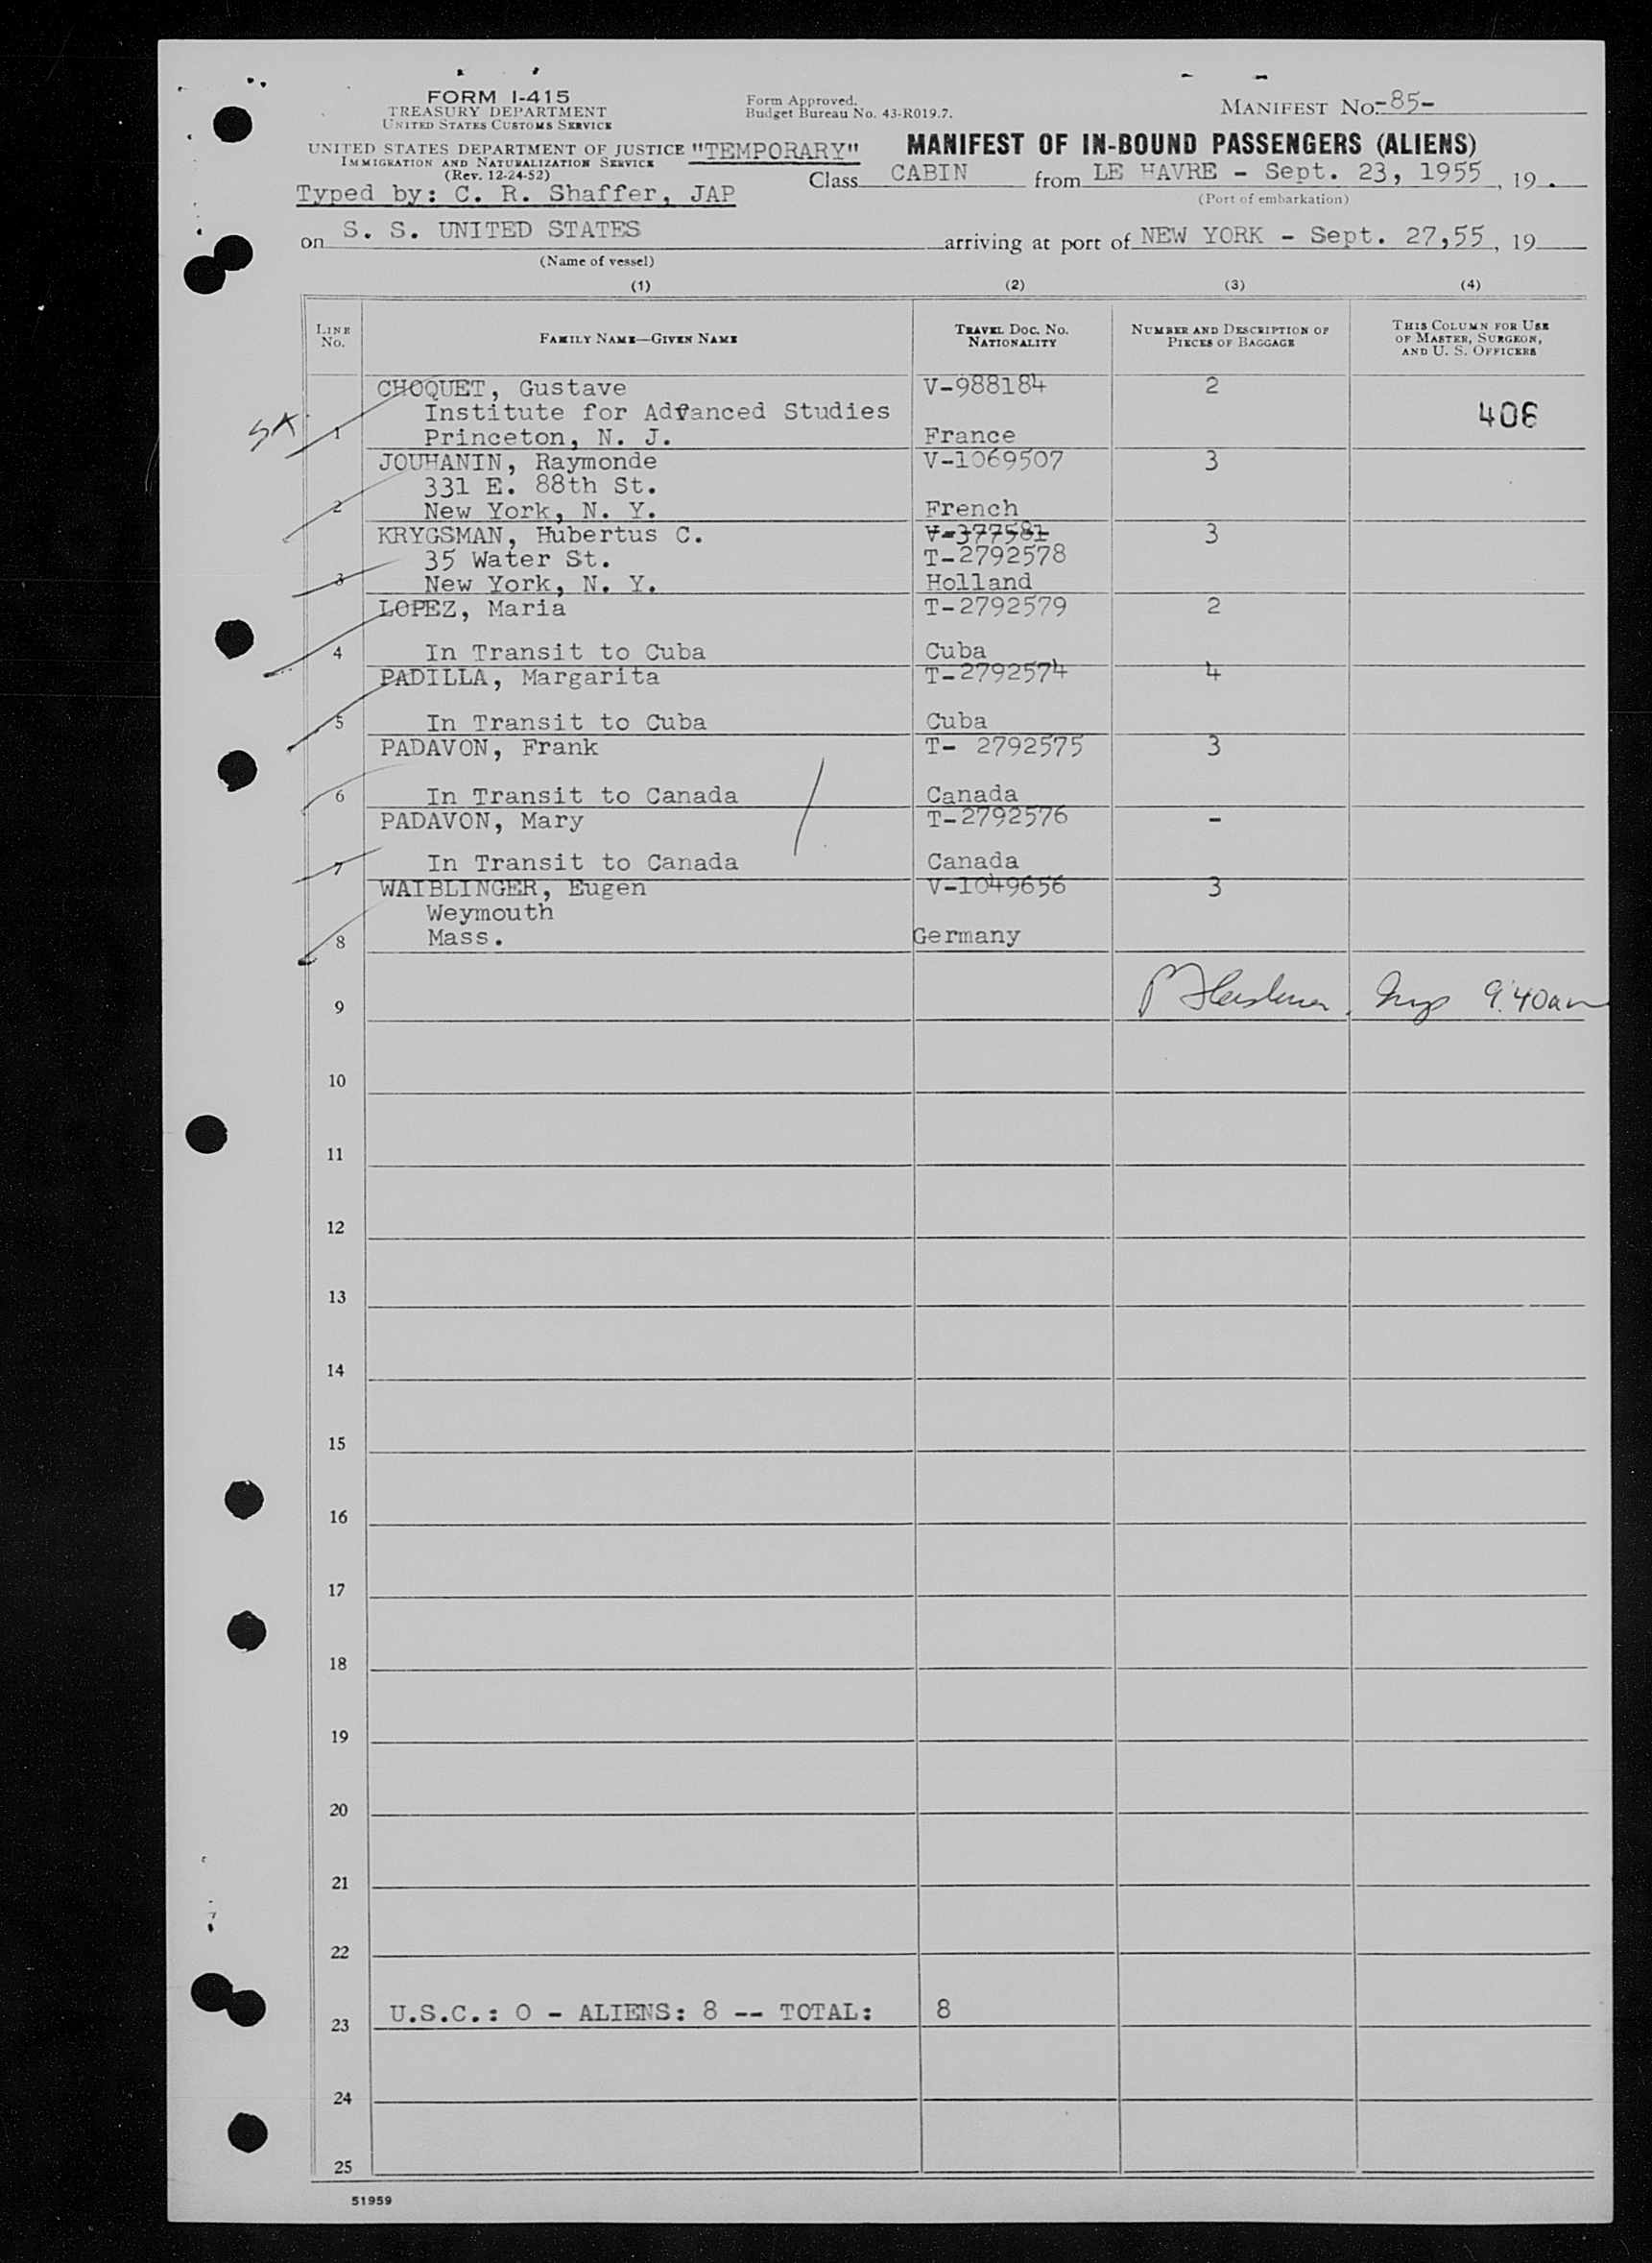 FORM I-415
TREASURY DEPARTMENT
UNITED STATES CUSTOMS SERVICE
Form Approved.
Budget Bureau No. 43-R019.7.
MANIFEST No. -85-
UNITED STATES DEPARTMENT OF JUSTICE "TEMPORARY"
IMMIGRATION AND NATURALIZATION SERVICE
(Rev. 12-24-52)
MANIFEST OF IN-BOUND PASSENGERS (ALIENS)
Typed by: C. R. Shaffer, JAP
Class CABIN from LE HAVRE - Sept. 23, 1955, 19 .
(Port of embarkation)
on S. S. UNITED STATES arriving at port of NEW YORK - Sept. 27,55, 19
(Name of vessel)
(1) (2) (3) (4)
LINE No. FAMILY NAME—GIVEN NAME TRAVEL DOC. NO. NATIONALITY NUMBER AND DESCRIPTION OF PIECES OF BAGGAGE THIS COLUMN FOR USE OF MASTER, SURGEON, AND U. S. OFFICERS
CHOQUET, Gustave V-988184 2
Institute for Advanced Studies 406
1 Princeton, N. J. France
JOUHANIN, Raymonde V-1069507 3
331 E. 88th St.
2 New York, N. Y. French
KRYGSMAN, Hubertus C. V-377581 3
35 Water St. T-2792578
3 New York, N. Y. Holland
LOPEZ, Maria T-2792579 2
4 In Transit to Cuba Cuba
PADILLA, Margarita T-2792574 4
5 In Transit to Cuba Cuba
PADAVON, Frank T- 2792575 3
6 In Transit to Canada Canada
PADAVON, Mary T-2792576 -
7 In Transit to Canada Canada
WAIBLINGER, Eugen V-1049656 3
Weymouth
8 Mass. Germany
9 9:40am
10
11
12
13
14
15
16
17
18
19
20
21
22
23 U.S.C.: 0 - ALIENS: 8 -- TOTAL: 8
24
25
51959